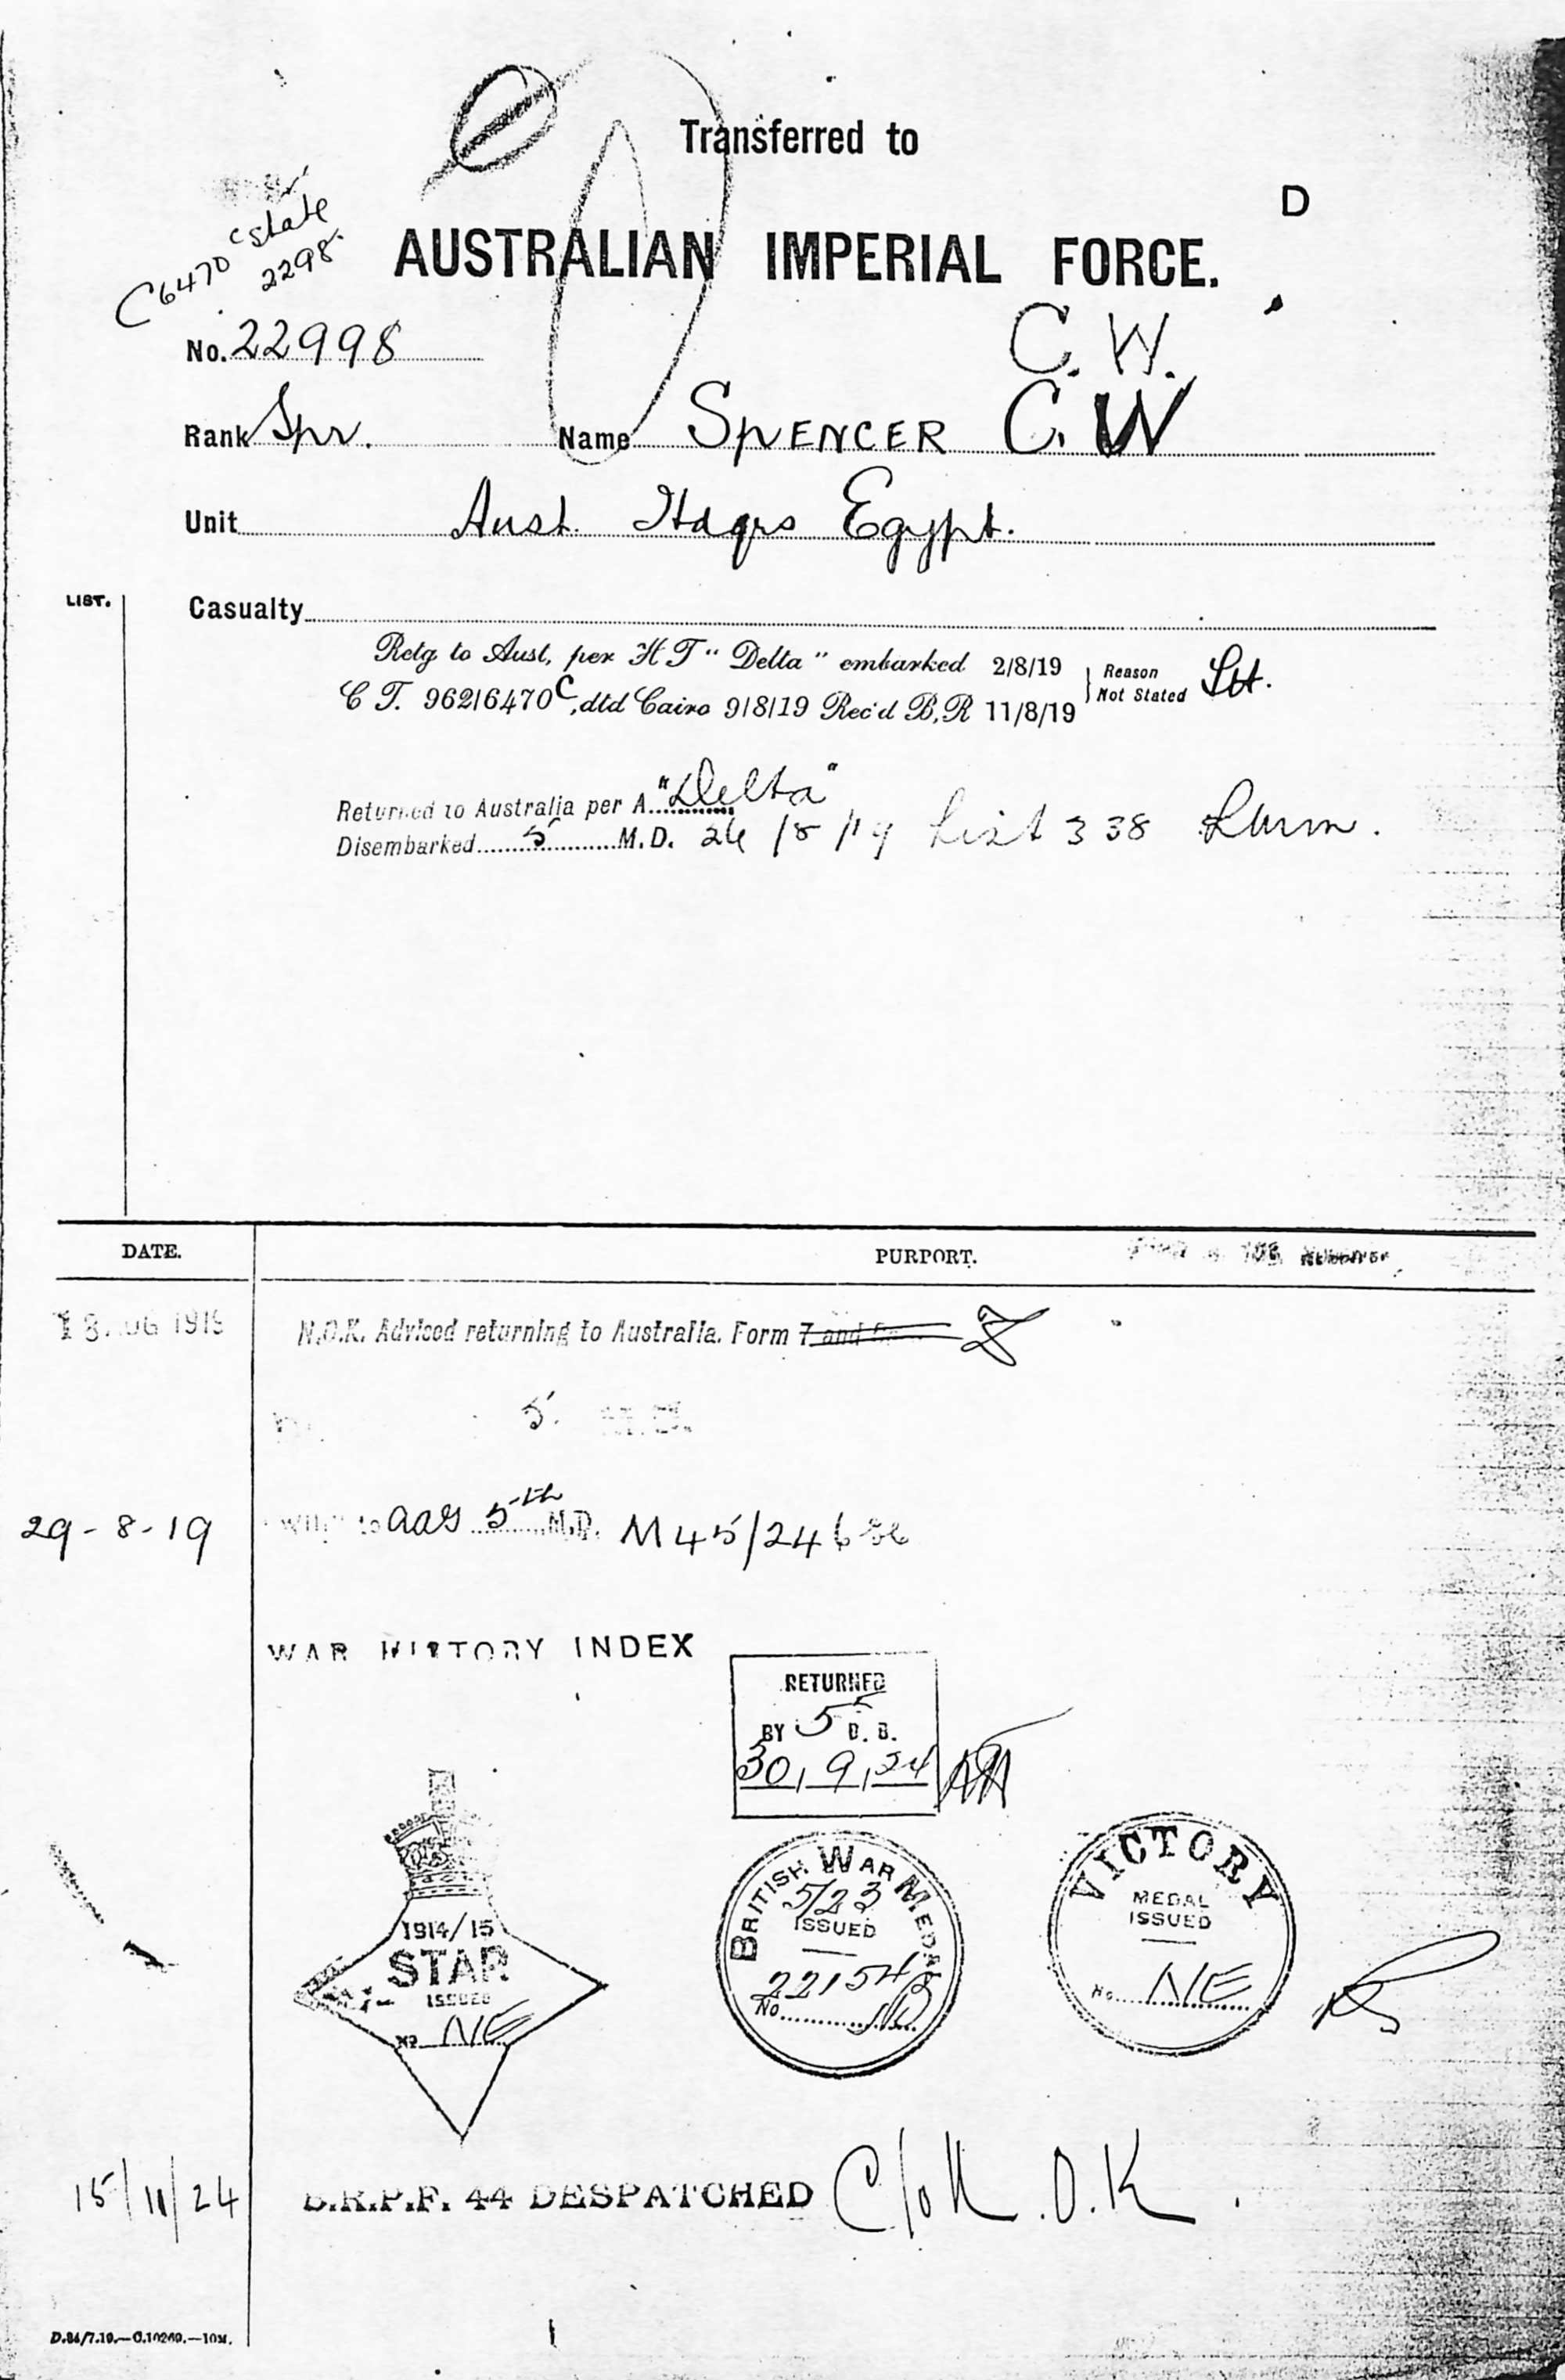 Transferred to
D
AUSTRALIAN IMPERIAL FORCE.
C6470 C state
2298.
No. 22998
C. W.
Rank Spr. Name SPENCER C. W
Unit Aust. Hdqrs Egypt.
LIST.
Casualty
Retg to Aust, per H T "Delta" embarked 2/8/19 Reason
C T. 962/6470 C, dtd Cairo 9/8/19 Rec'd B,R 11/8/19 Not Stated
Returned to Australia per A. "Delta"
Disembarked 5 M.D. 26/8/19 List 338
DATE. PURPORT.
N.O.K. Advised returning to Australia. Form 7 and
5.
29-8-19 to AAG 5th M.D. M45/246
WAR HISTORY INDEX
RETURNED
BY 5 D. B.
30,9,24
1914/15
STAR
ISSUED
No NE
BRITISH WAR MEDAL
5/23
ISSUED
22154
No.
VICTORY
MEDAL
ISSUED
No. NE
15/11/24 B.R.P.F. 44 DESPATCHED O.K.
D.84/7.19.—C.10269.—10M.